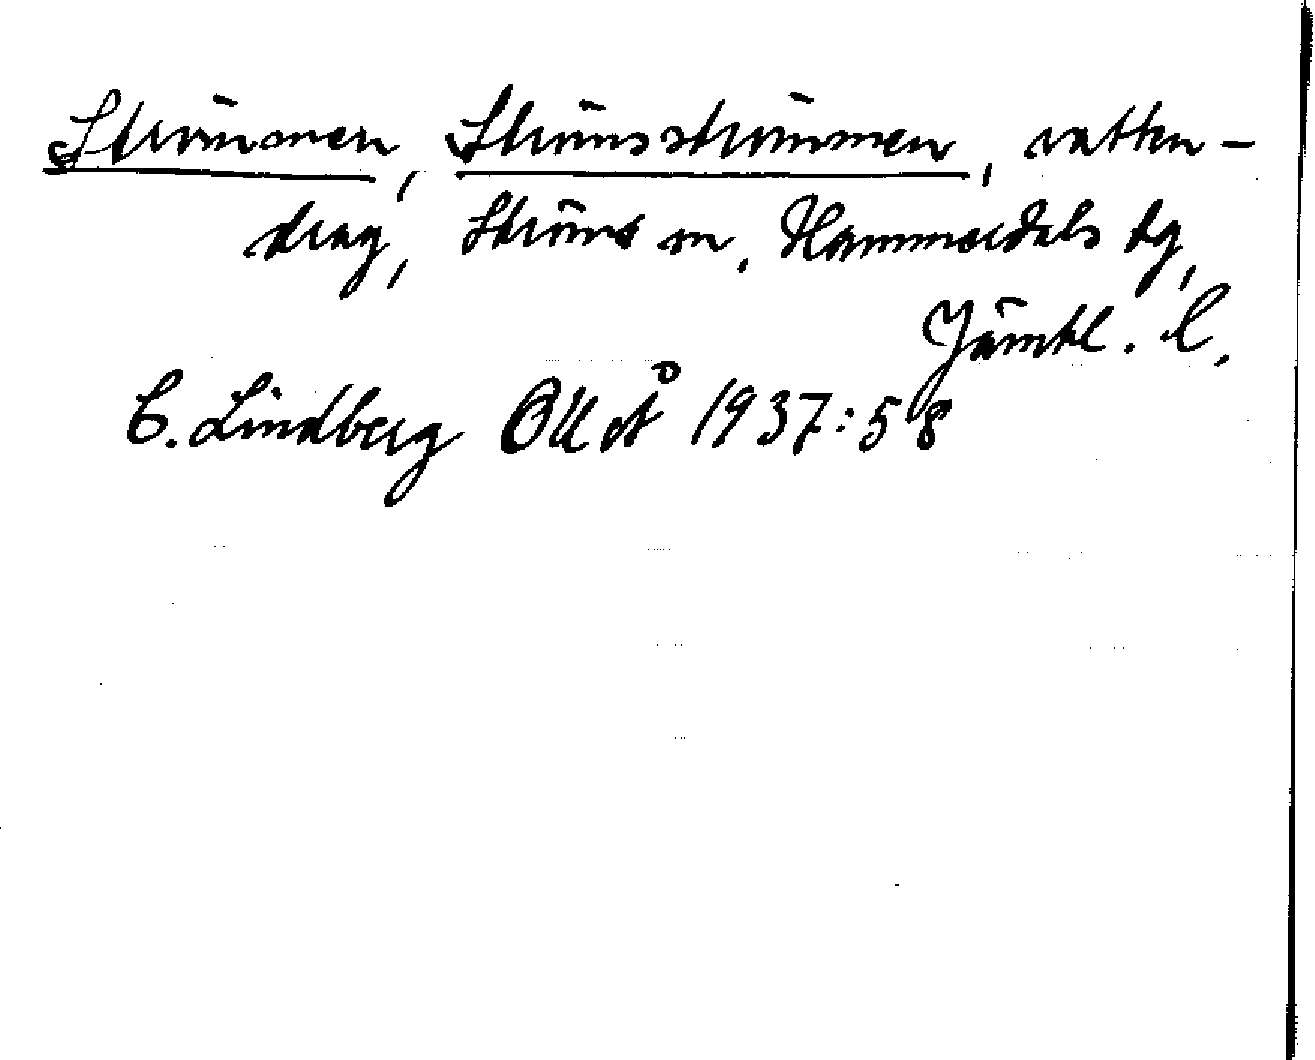 Strömmen, Strömsströmmen, vatten-
drag, Ströms sn, Hammerdals tg,
Jämtl. l.
C. Lindberg 1937:58